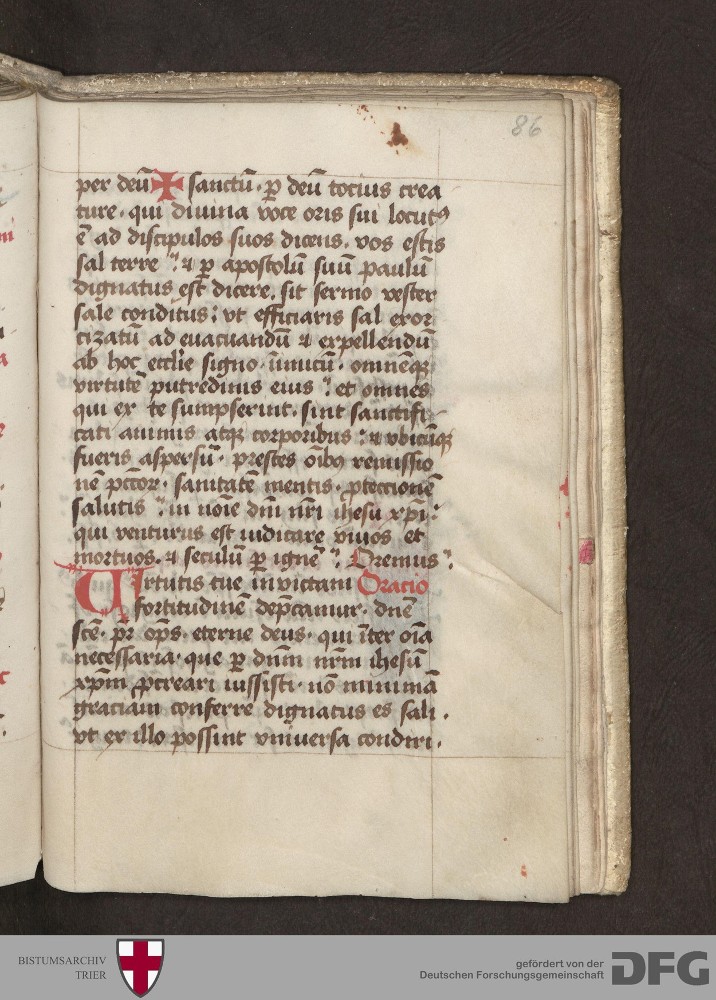 86
per deū ✠ sanctū · ꝑ deū totius crea
ture · qui diuina voce oris sui locutꝰ
ē ad discipulos suos dicens · vos estis
sal terre ⁊ ꝑ apostolū suū paulū
dignatus est dicere · sit sermo vester
sale conditus : vt efficiaris sal exor
cizatū ad euacuandū ⁊ expellendū
ab hoc ecclīe signo · inimicū · omnēqꝫ
virtutē putredinis eius : et omnes
qui ex te sumpserint · sint sanctifi
cati animis atqꝫ corporibus : ⁊ vbicūqꝫ
fueris aspersū · prestes oībꝰ remissio
nē pctōr · sanitatē mentis · ꝓtectionē
salutis : in noīe dnī nrī ihesu xpī :
qui venturus est iudicare viuos et
mortuos · ⁊ seculū ꝑ ignē : Oremus :
Virtutis tue inuictam Oracio
fortitudinē dep̄camur · dnē
scē · pr̄ ops̄ · eterne deus · qui īter oīa
necessaria · que ꝑ dnm̄ nrm̄ ihesū
xpm̄ ꝓcreari iussisti · nō minimā
graciam conferre dignatus es sali ·
vt ex illo possint vniuersa condiri ·
BISTUMSARCHIV
TRIER
gefördert von der
Deutschen Forschungsgemeinschaft
DFG